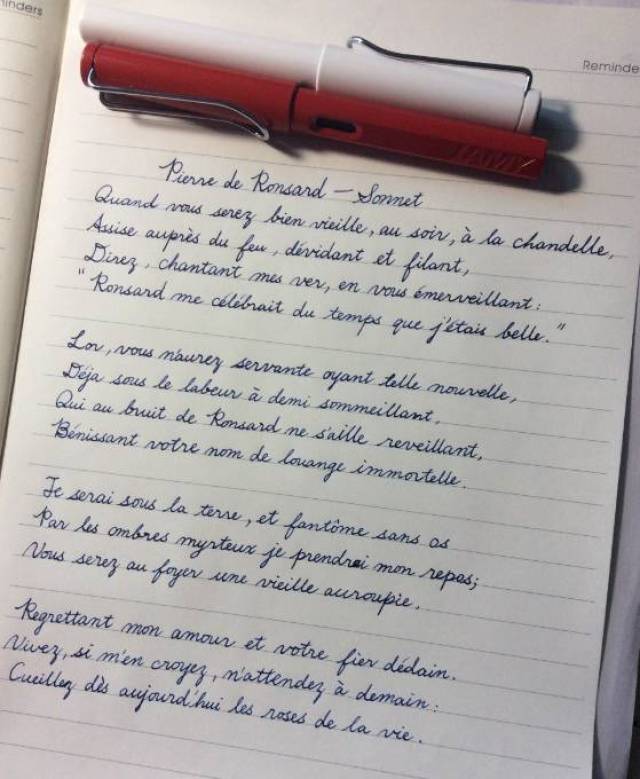 inders
Reminde
LAMY
Pierre de Ronsard — Sonnet
Quand vous serez bien vieille, au soir, à la chandelle,
Assise auprès du feu, dévidant et filant,
Direz, chantant mes ver, en vous émerveillant :
"Ronsard me célébrait du temps que j'étais belle."
Lor, vous n'aurez servante oyant telle nouvelle,
Déja sous le labeur à demi sommeillant,
Qui au bruit de Ronsard ne s'aille reveillant,
Bénissant votre nom de louange immortelle.
Je serai sous la terre, et fantôme sans os
Par les ombres myrteux je prendrai mon repos;
Vous serez au foyer une vieille accroupie.
Regrettant mon amour et votre fier dédain.
Vivez, si m'en croyez, n'attendez à demain :
Cueillez dès aujourd'hui les roses de la vie.